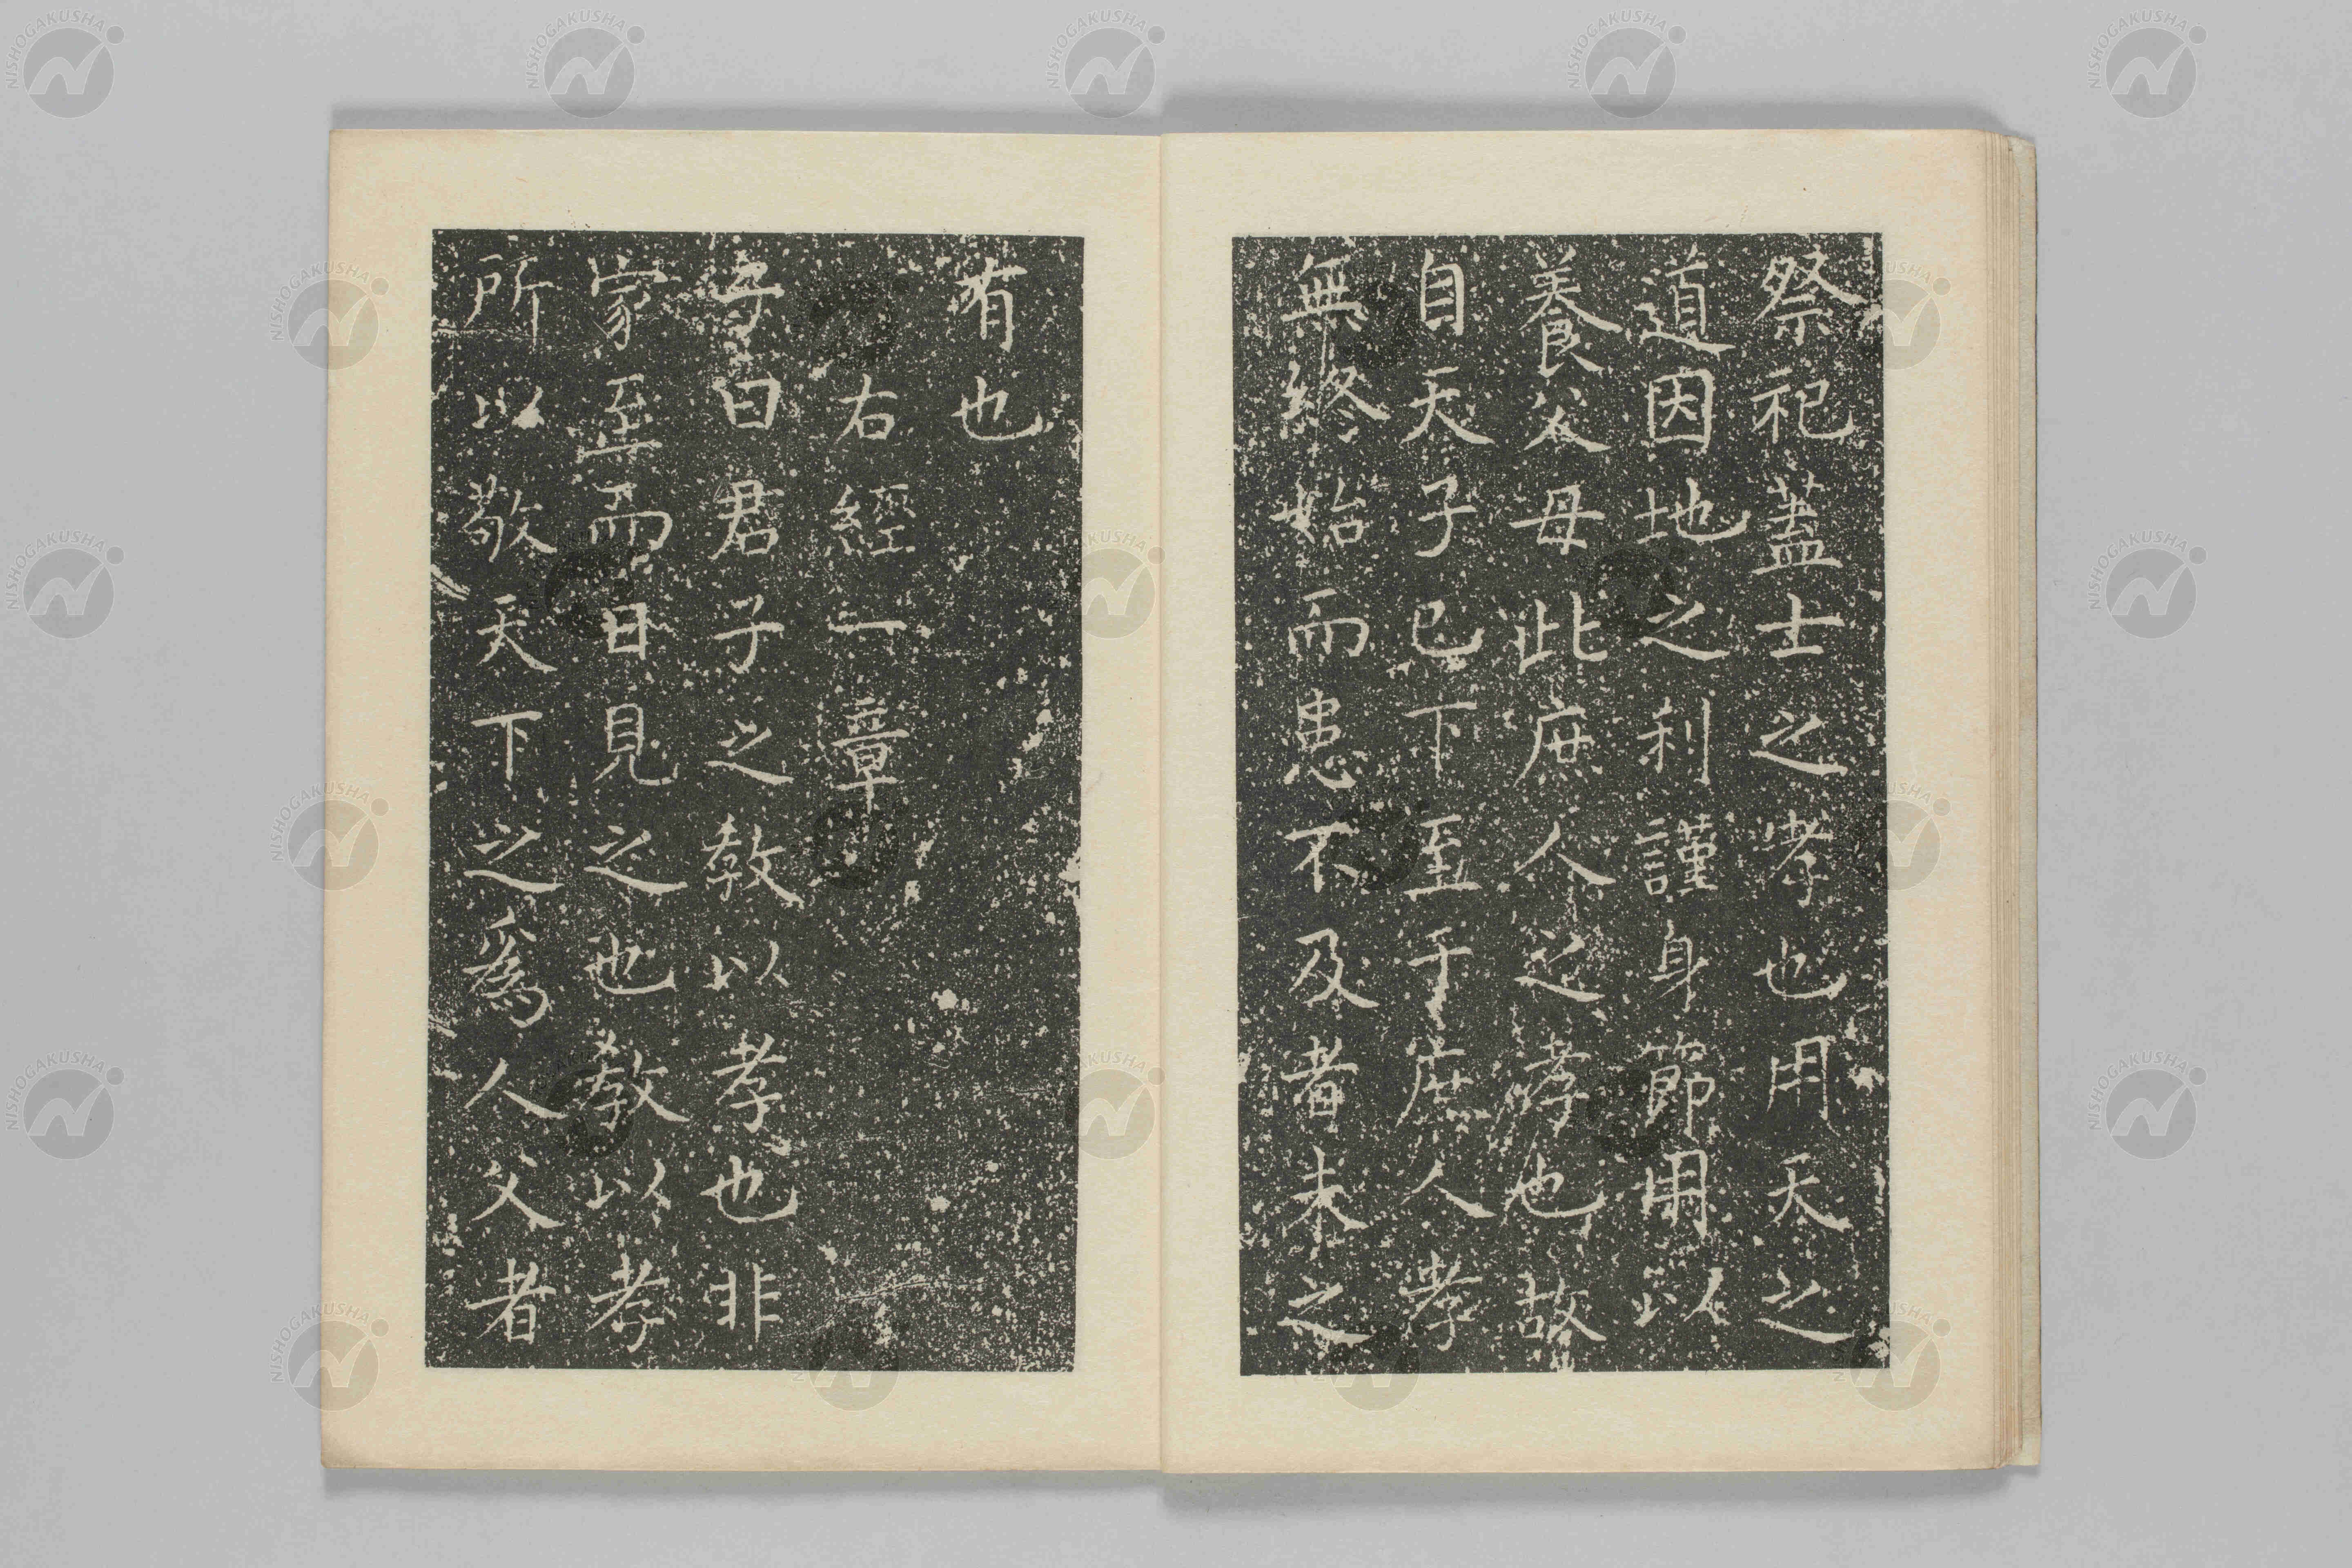 祭祀蓋士之孝也用天之
道因地之利謹身節用以
養父母此庶人之孝也故
自天子已下至于庶人孝
無終始而患不及者未之
有也
右經一章
子曰君子之教以孝也非
家至而日見之也教以孝
所以敬天下之爲人父者
NISHOGAKUSHA